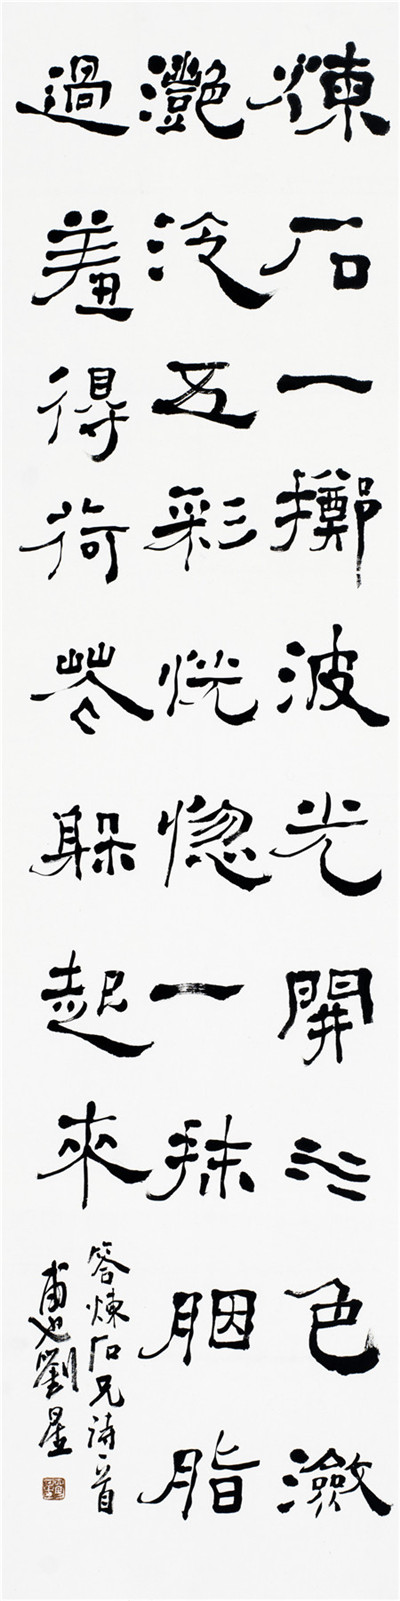 煉石一擲波光開水色瀲
灔泠五彩恍惚一抹胭脂
過羞得荷花躲起來
答煉石兄詩一首
甫也劉星